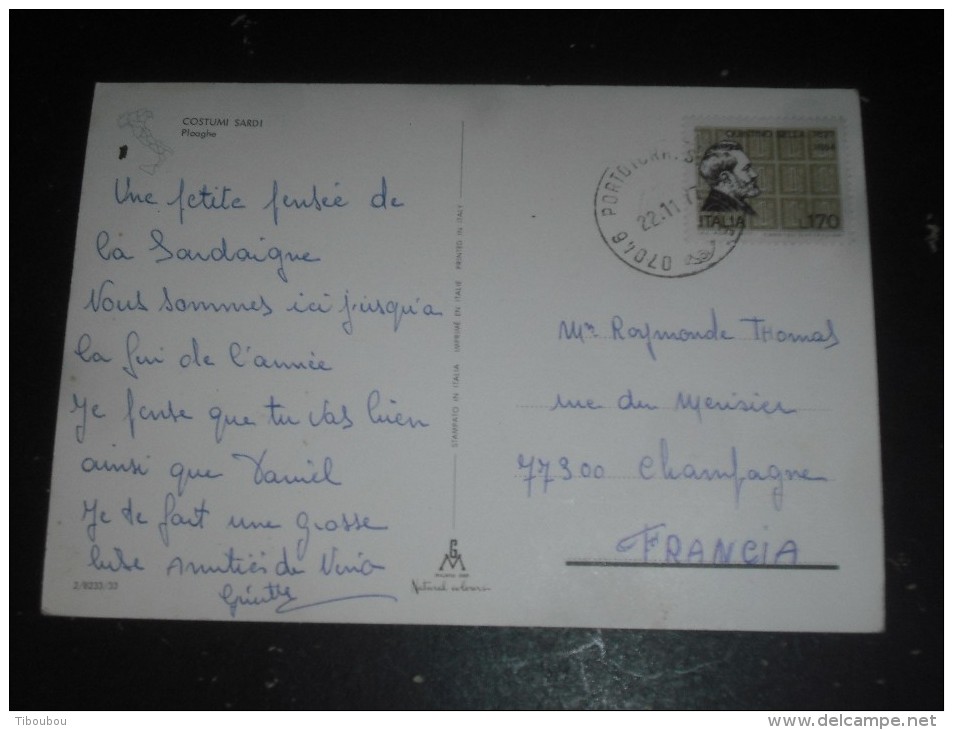 COSTUMI SARDI
Ploaghe
Une petite pensée de
la Sardaigne
Nous sommes ici jusqu'a
la fin de l'année
Je pense que tu vas bien
ainsi que Daniel
Je te fait une grosse
bise amitiés de Nino
2/9233/33
STAMPATO IN ITALIA IMPRIMÉ EN ITALIE PRINTED IN ITALY
Natural colours
QUINTINO SELLA
ITALIA L.170
07046 PORTOTORR
22.11.7
Mme Raymonde Thomas
rue du Merisier
77300 Champagne
FRANCIA
Tiboubou
www.delcampe.net